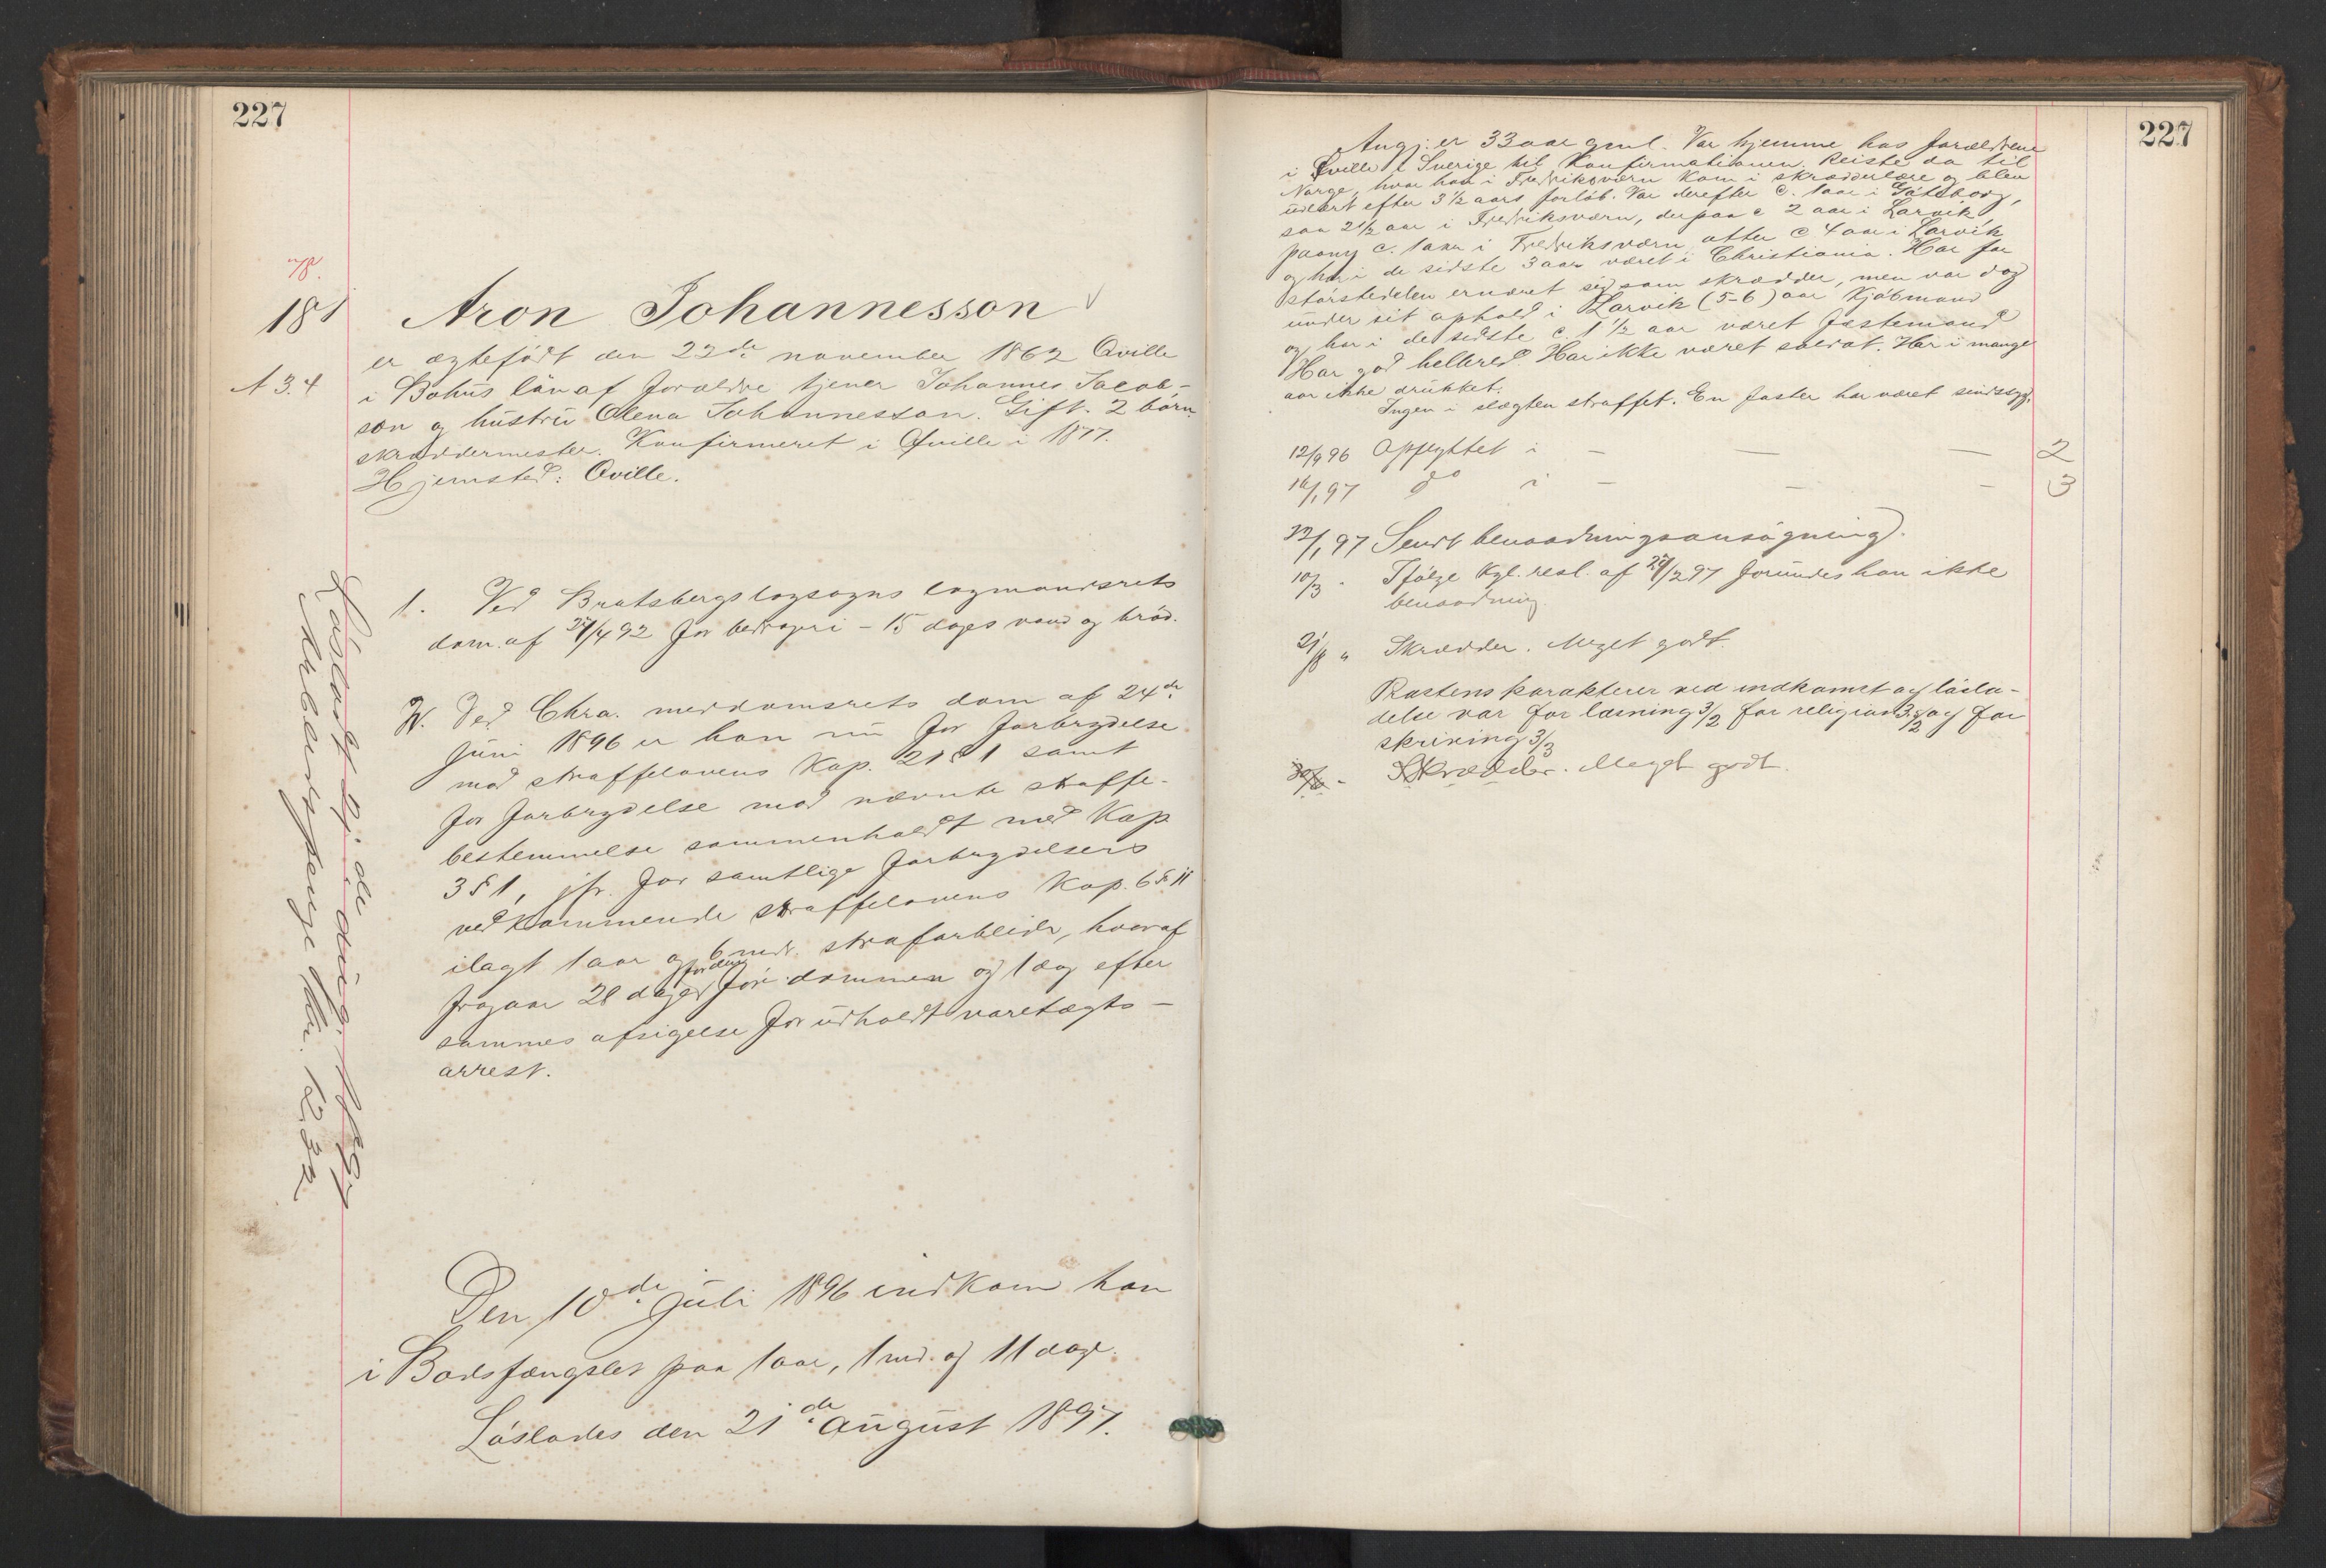 227
181
A 3.4
Aron Johannesson
er ægtefödt den 22de november 1862 Qville
i Bohus län af forældre tjener Johannes Jacob-
son og hustru Olena Johannesson. Gift. 2 börn.
skræddermester. Konfirmeret i Qville i 1877.
Hjemsted: Qville.
1. Ved Bratsbergs lagsogns lagmandsrets
dom af 27/4 92 for bedrageri - 15 dages vand og bröd.
Ved Chra. meddomsrets dom af 24de
Juni 1896 er han nu for forbrydelse
mod straffelovens Kap. 21 § 1 samt
for forbrydelse mod nævnte straffe-
bestemmelse sammenholdt med Kap
3 § 1, jfr. for samtlige forbrydelsers
vedkommende straffelovens Kap. 6 § 11
ilagt 1 aar og 6 mdr. strafarbeide, hvoraf
fragaar 28 dage for före dommen og 1 dag efter
sammes afsigelse for udholdt varetægts-
arrest.
Löslodt 21de aug.
Arbeidspenge kr. 12.32
Den 10de Juli 1896 indkom han
i Bodsfængslet paa 1 aar, 1 md. og 11 dage.
Löslodes den 21de august 1897.
227
Angj. er 33 aar gml. Var hjemme hos forældrene
i Qville i Sverige til Konfirmationen. Reiste da til
Norge, hvor han i Fredriksværn kom i skrædderlære og blev
udlært efter 3 1/2 aars forlöb. Var derefter c. 1 aar i Göteborg,
saa 2 1/2 aar i Fredriksværn, derpaa c 2 aar i Larvik,
paany c. 1 aar i Fredriksværn, atter c 4 aar i Larvik
og har i de sidste 3 aar været i Christiania. Har for
störstedelen ernæret sig som skrædder, men var dog
under sit ophold i Larvik (5-6) aar Kjöbmand
og har i de sidste c. 1 1/2 aar været fæstemand
Har god helbred. Har ikke været soldat. Har i mange
aar ikke drukket.
Ingen i slægten straffet. En faster har været sindssyg.
12/9 96 Opflyttet i — — — 2
16/1 97 do i — — — 3
/1 97 Sendt benaadningsansögning.
10/3 - Ifölge Kgl. resl. af 27/2 97 forundes han ikke
benaadning.
21/8 " Skrædder. Meget godt.
Prästens karakterer ved indkomst og lösla-
delse var for læsning 3/2 for religion 3.5/2 og for
skrivning 3/3
Skrædder. Meget godt.